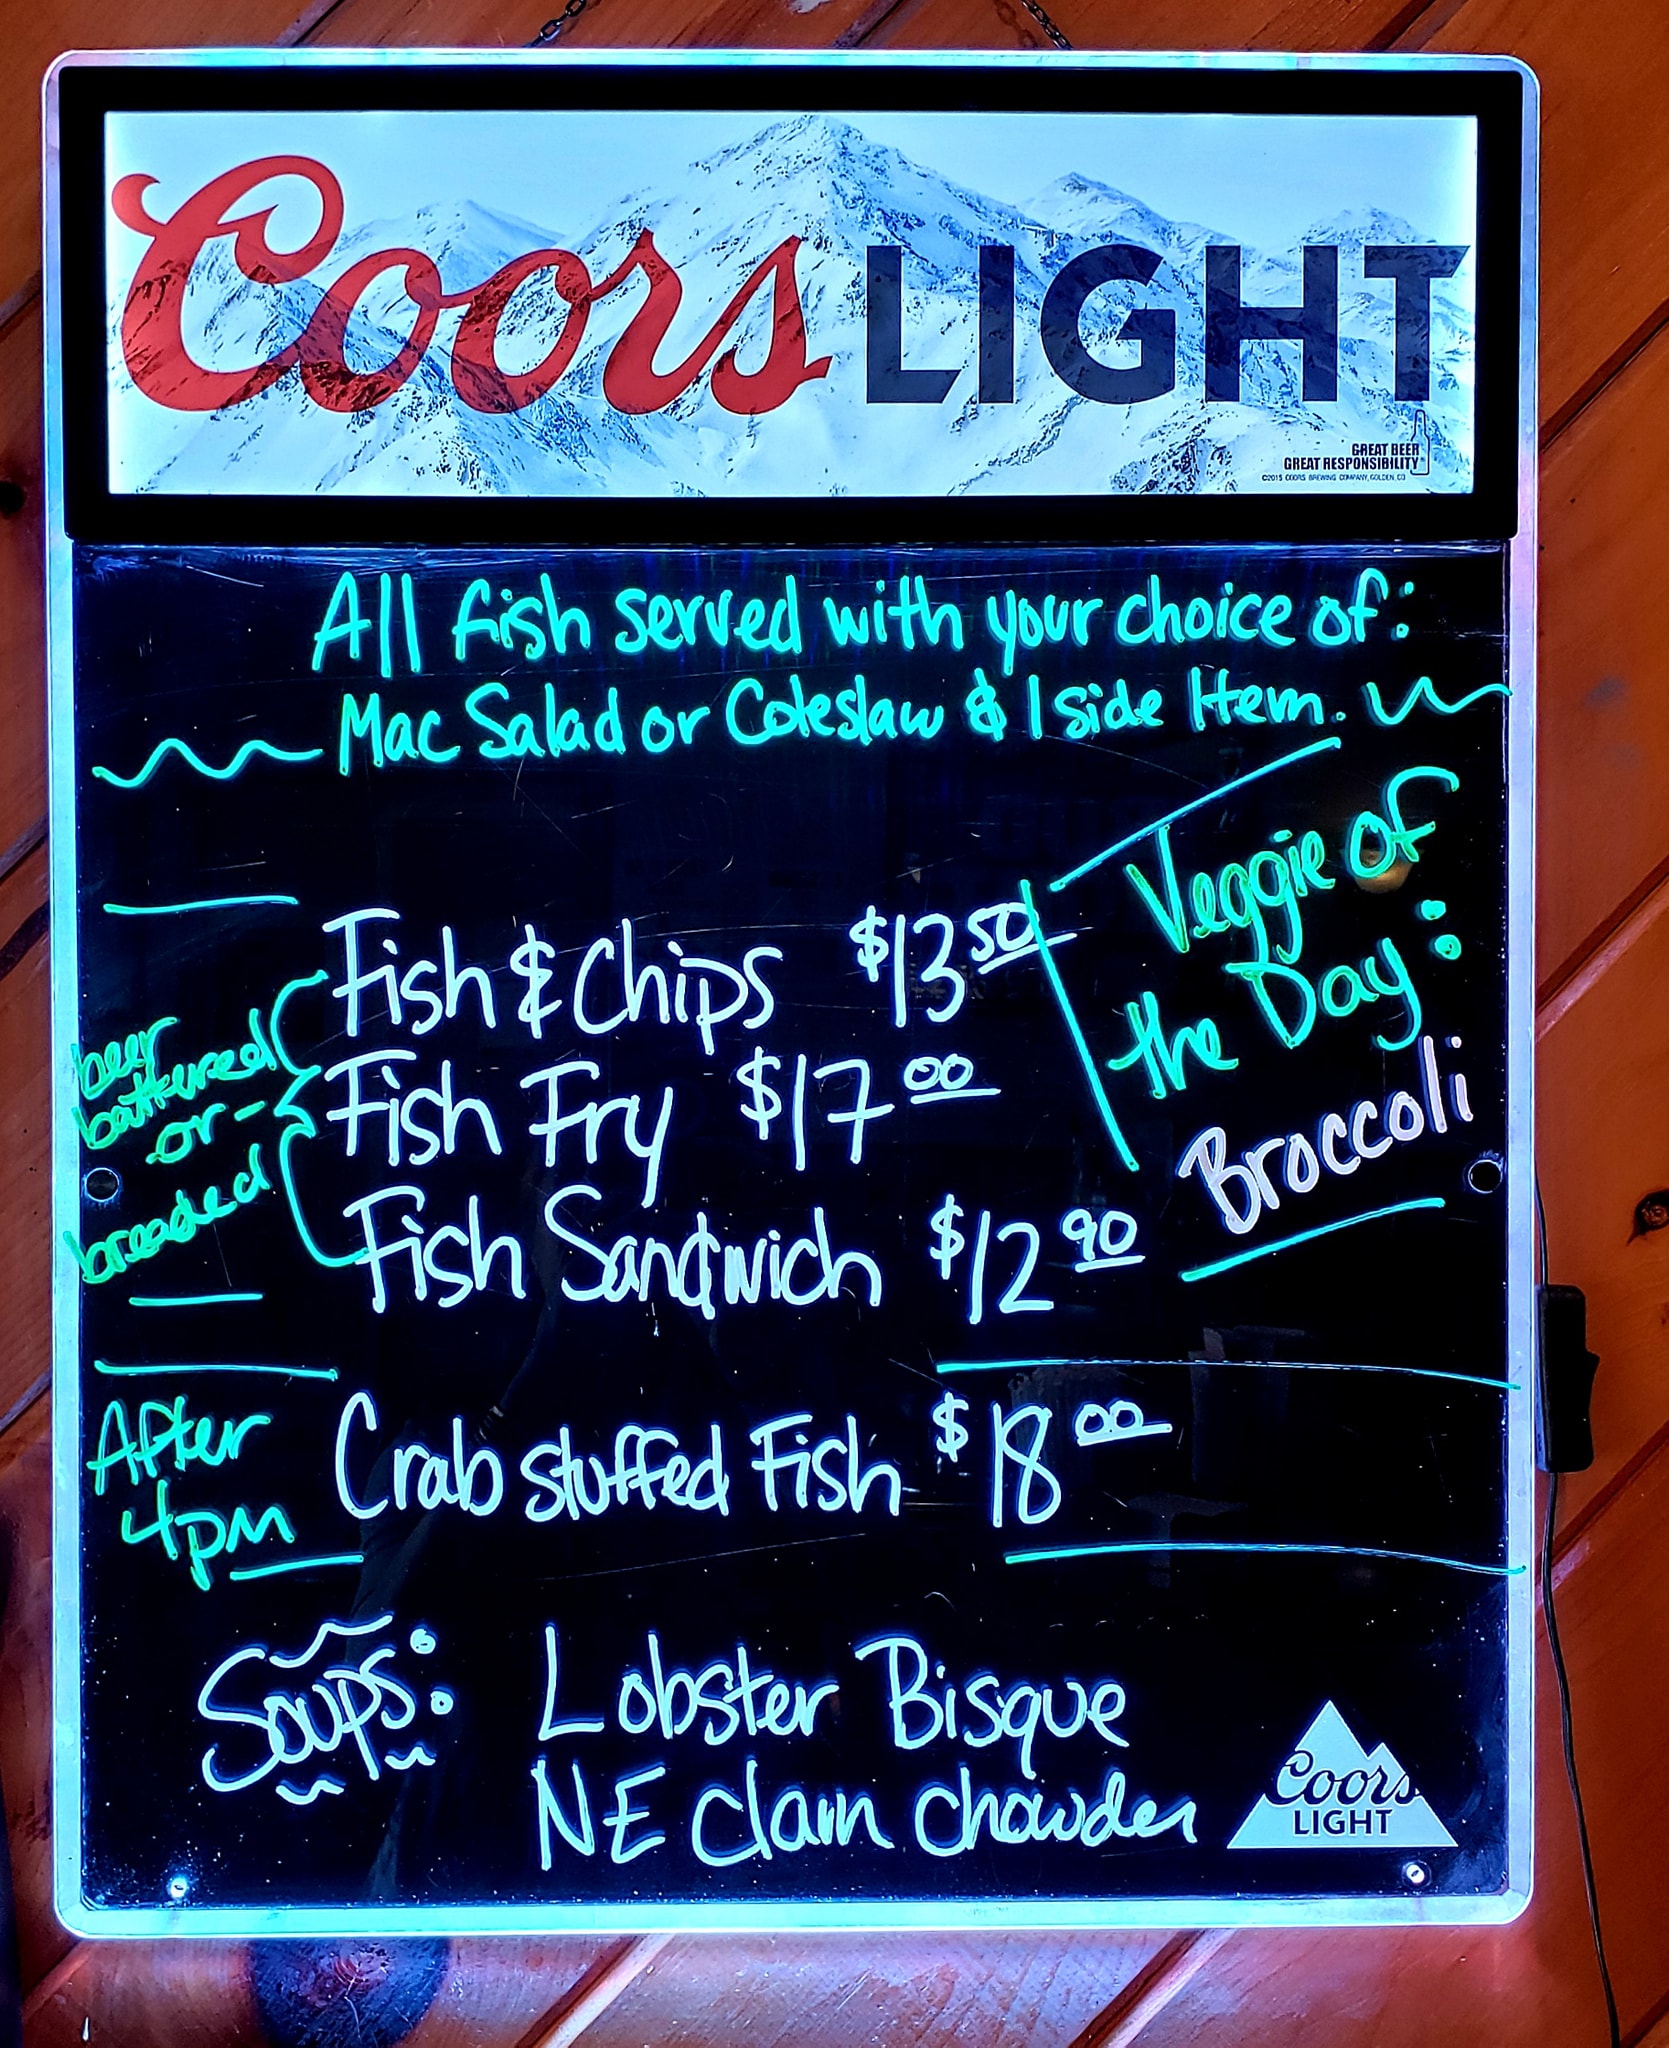 Coors LIGHT
GREAT BEER
GREAT RESPONSIBILITY
©2015 COORS BREWING COMPANY, GOLDEN, CO
All fish served with your choice of:
Mac Salad or Coleslaw & 1 side Item.
Veggie of
the Day:
Broccoli
beer
battered
or -
breaded
Fish & Chips $13.50
Fish Fry $17.00
Fish Sandwich $12.90
After
4pm
Crab stuffed Fish $18.00
Soups:
Lobster Bisque
NE Clam Chowder
Coors
LIGHT